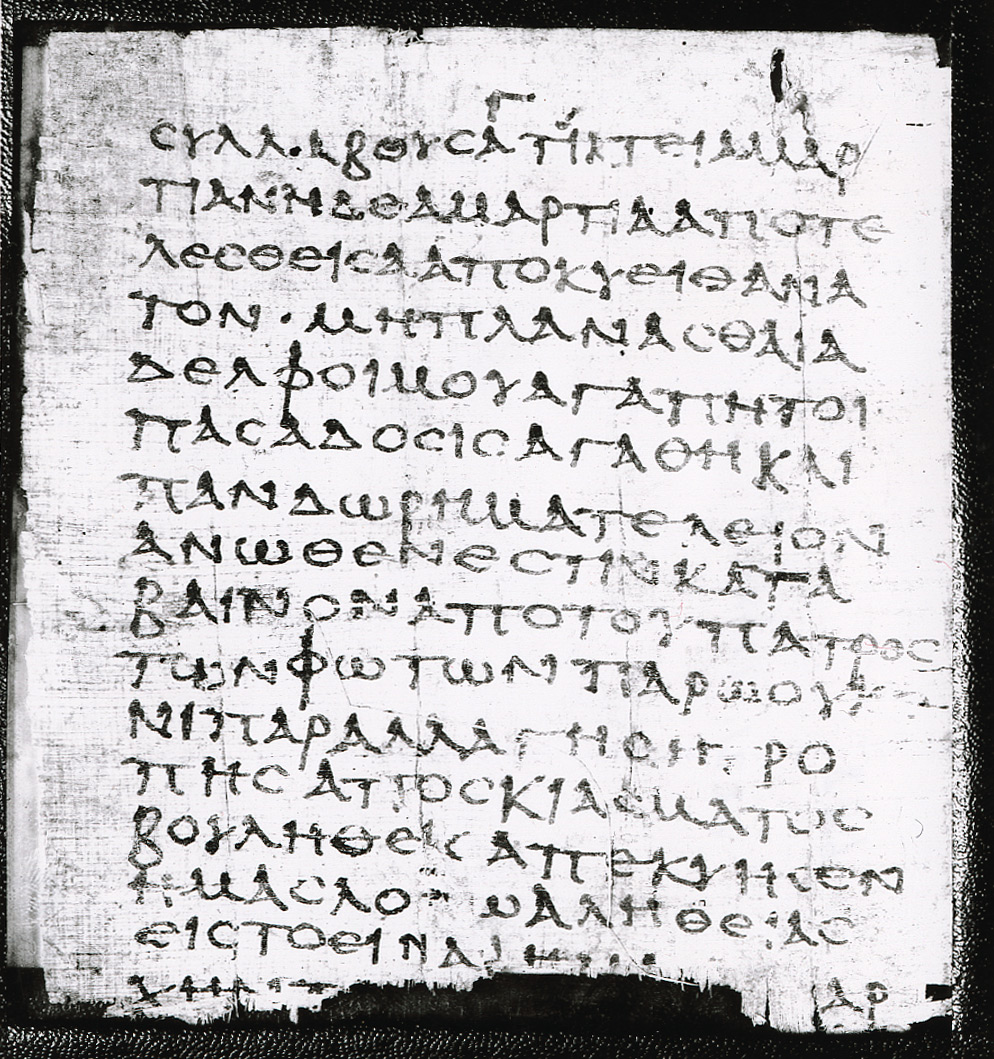 Γ
ϲυλλαβουϲα τικτει αμαρ
τιαν η δε αμαρτια αποτε
λεϲθειϲα αποκυει θανα
τον · μη πλανασθαι α
δελφοι μου αγαπητοι
παϲα δοϲιϲ αγαθη και
παν δωρημα τελειον
ανωθεν εϲτιν κατα
βαινον απο του πατροϲ
των φωτων παρ ω ουκ
νι παραλλαγηϲ η ρο
πηϲ αποϲκιαϲματοϲ
βουληθειϲ απεκυηϲεν
ημαϲ λο ω αληθειαϲ
ειϲ το ειναι
αρ